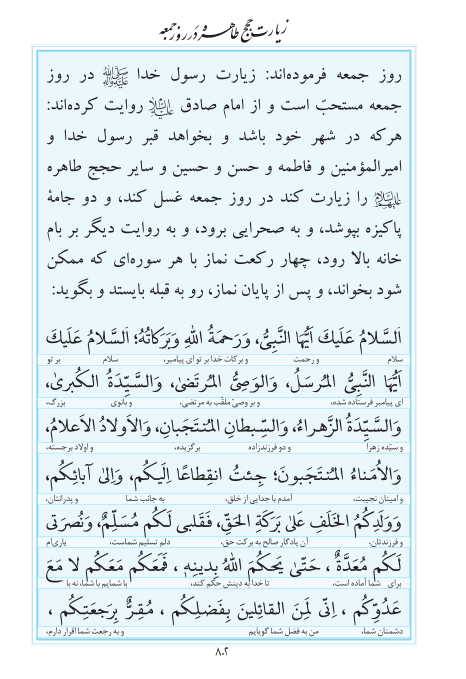 زیارت حجج طاهره در روز جمعه
روز جمعه فرموده‌اند: زیارت رسول خدا ﷺ در روز
جمعه مستحبّ است و از امام صادق علیه‌السلام روایت کرده‌اند:
هرکه در شهر خود باشد و بخواهد قبر رسول خدا و
امیرالمؤمنین و فاطمه و حسن و حسین و سایر حجج طاهره
علیهم‌السلام را زیارت کند در روز جمعه غسل کند، و دو جامهٔ
پاکیزه بپوشد، و به صحرایی برود، و به روایت دیگر بر بام
خانه بالا رود، چهار رکعت نماز با هر سوره‌ای که ممکن
شود بخواند، و پس از پایان نماز، رو به قبله بایستد و بگوید:
اَلسَّلامُ عَلَیكَ اَیُّهَا النَّبِیُّ، وَرَحمَةُ اللهِ وَبَرَكاتُهُ؛ اَلسَّلامُ عَلَیكَ
سلام بر تو ای پیامبر، و رحمت و برکات خدا سلام بر تو
اَیُّهَا النَّبِیُّ المُرسَلُ، وَالوَصِیُّ المُرتَضیٰ، وَالسَّیِّدَةُ الكُبریٰ،
ای پیامبر فرستاده شده، و بر وصیّ ملقّب به مرتضی، و بانوی بزرگ،
وَالسَّیِّدَةُ الزَّهراءُ، وَالسِّبطانِ المُنتَجَبانِ، وَالاَولادُ الاَعلامُ،
و سیّده زهرا و دو فرزندزاده برگزیده، و اولاد برجسته،
وَالاُمَناءُ المُنتَجَبونَ؛ جِئتُ انقِطاعًا اِلَیكُم، وَاِلیٰ آبائِكُم،
و امینان نجیبت، آمدم با جدایی از خلق، به جانب شما و پدرانتان،
وَوَلَدِكُمُ الخَلَفِ عَلیٰ بَرَكَةِ الحَقِّ، فَقَلبی لَكُم مُسَلِّمٌ، وَنُصرَتی
و فرزندتان، آن یادگار صالح به برکت حق، دلم تسلیم شماست، یاری‌ام
لَكُم مُعَدَّةٌ ، حَتّیٰ یَحكُمَ اللهُ بِدینِهِ ، فَمَعَكُم مَعَكُم لا مَعَ
برای شما آماده است، تا خدا به دینش حکم کند، با شمایم با شما، نه با
عَدُوِّكُم ، اِنّی لَمِنَ القائِلینَ بِفَضلِكُم ، مُقِرٌّ بِرَجعَتِكُم ،
دشمنان شما، من به فضل شما گویایم و به رجعت شما اقرار دارم،
۸۰۲